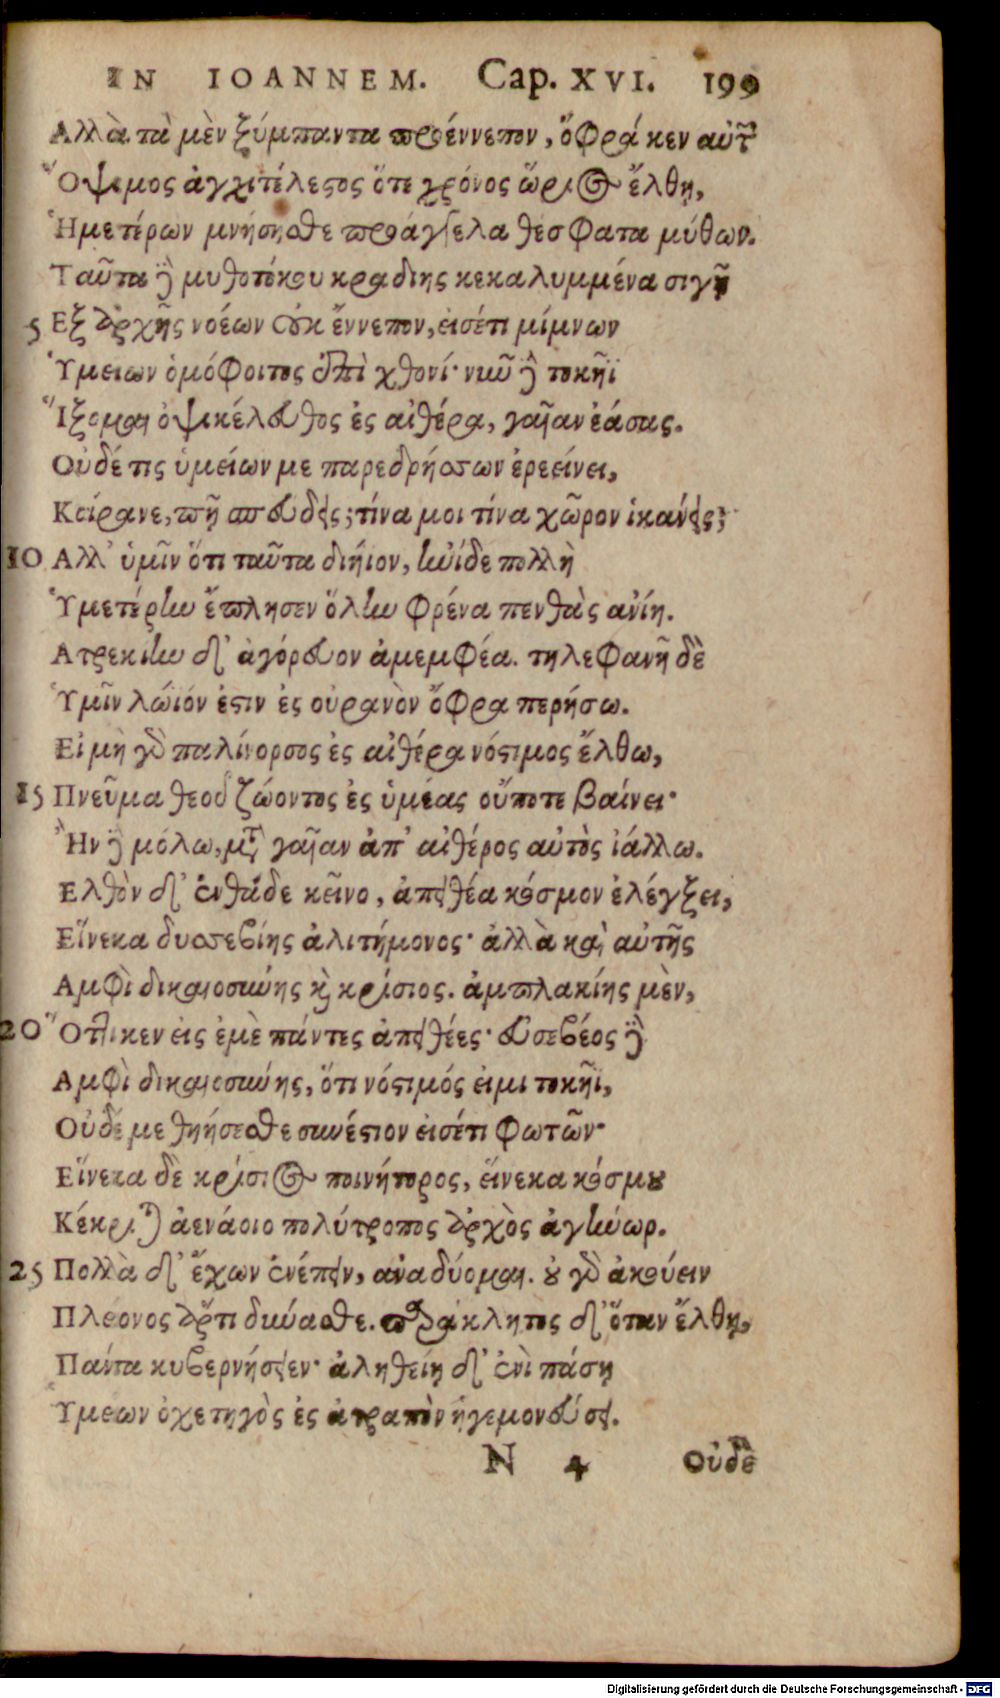 IN IOANNEM. Cap. XVI. 199
Αλλὰ τὰ μὲν ξύμπαντα προέννεπον, ὄφρά κεν αὐτ
Ὄψιμος ἀγχιτέλεστος ὅτε χρόνος ὥριος ἔλθῃ,
Ἡμετέρων μνήσησθε προάγγελα θέσφατα μύθων.
Ταῦτα δὲ μυθοτόκου κραδίης κεκαλυμμένα σιγῇ
5 Εξ ἀρχῆς νοέων οὐκ ἔννεπον, εἰσέτι μίμνων
Ὑμείων ὁμόφοιτος ἐπὶ χθονί· νῦν δὲ τοκῆϊ
Ἵξομαι ὀψικέλευθος ἐς αἰθέρα, γαῖαν ἐάσας.
Οὐδέ τις ὑμείων με παρεδρήσσων ἐρεείνει,
Κοίρανε, πῆ σπεύδεις; τίνα μοι τίνα χῶρον ἱκάνεις;
10 Αλλ' ὑμῖν ὅτι ταῦτα διήϊον, ἠνίδε πολλὴ
Ὑμετέρην ἔπλησεν ὅλην φρένα πενθὰς ἀνίη.
Ατρεκίην δ' ἀγόρευον ἀμεμφέα. τηλεφανῆ δὲ
Ὑμῖν λώϊόν ἐστιν ἐς οὐρανὸν ὄφρα περήσω.
Εἰ μὴ γὸ παλίνορσος ἐς αἰθέρα νόστιμος ἔλθω,
15 Πνεῦμα θεοῦ ζώοντος ἐς ὑμέας οὔποτε βαίνει·
Ἢν δὲ μόλω, μετὰ γαῖαν ἀπ' αἰθέρος αὐτὸς ἰάλλω.
Ελθὸν δ' ἐνθάδε κεῖνο, ἀπειθέα κόσμον ἐλέγξει,
Εἵνεκα δυσσεβίης ἀλιτήμονος· ἀλλὰ καὶ αὐτῆς
Αμφὶ δικαιοσύνης καὶ κρίσιος. ἀμπλακίης μὲν,
20 Ὅττι κεν εἰς ἐμὲ πάντες ἀπειθέες· εὐσεβέος δὲ
Αμφὶ δικαιοσύνης, ὅτι νόστιμός εἰμι τοκῆι,
Οὐδέ με θηήσεσθε συνέστιον εἰσέτι φωτῶν·
Εἵνεκα δὲ κρίσιος ποινήτορος, εἵνεκα κόσμου
Κέκριται ἀενάοιο πολύτροπος ἀρχὸς ἀγήνωρ.
25 Πολλὰ δ' ἔχων ἐνέπειν, ἀναδύομαι. οὐ γὸ ἀκούειν
Πλέονος ἄρτι δύνασθε. παράκλητος δ' ὅταν ἔλθῃ,
Πάντα κυβερνήσειεν· ἀληθείη δ' ἐνὶ πάσῃ
Ὑμέων ὀχετηγὸς ἐς ἀτραπὸν ἡγεμονεύσει.
N 4 Οὐδὲ
Digitalisierung gefördert durch die Deutsche Forschungsgemeinschaft - DFG